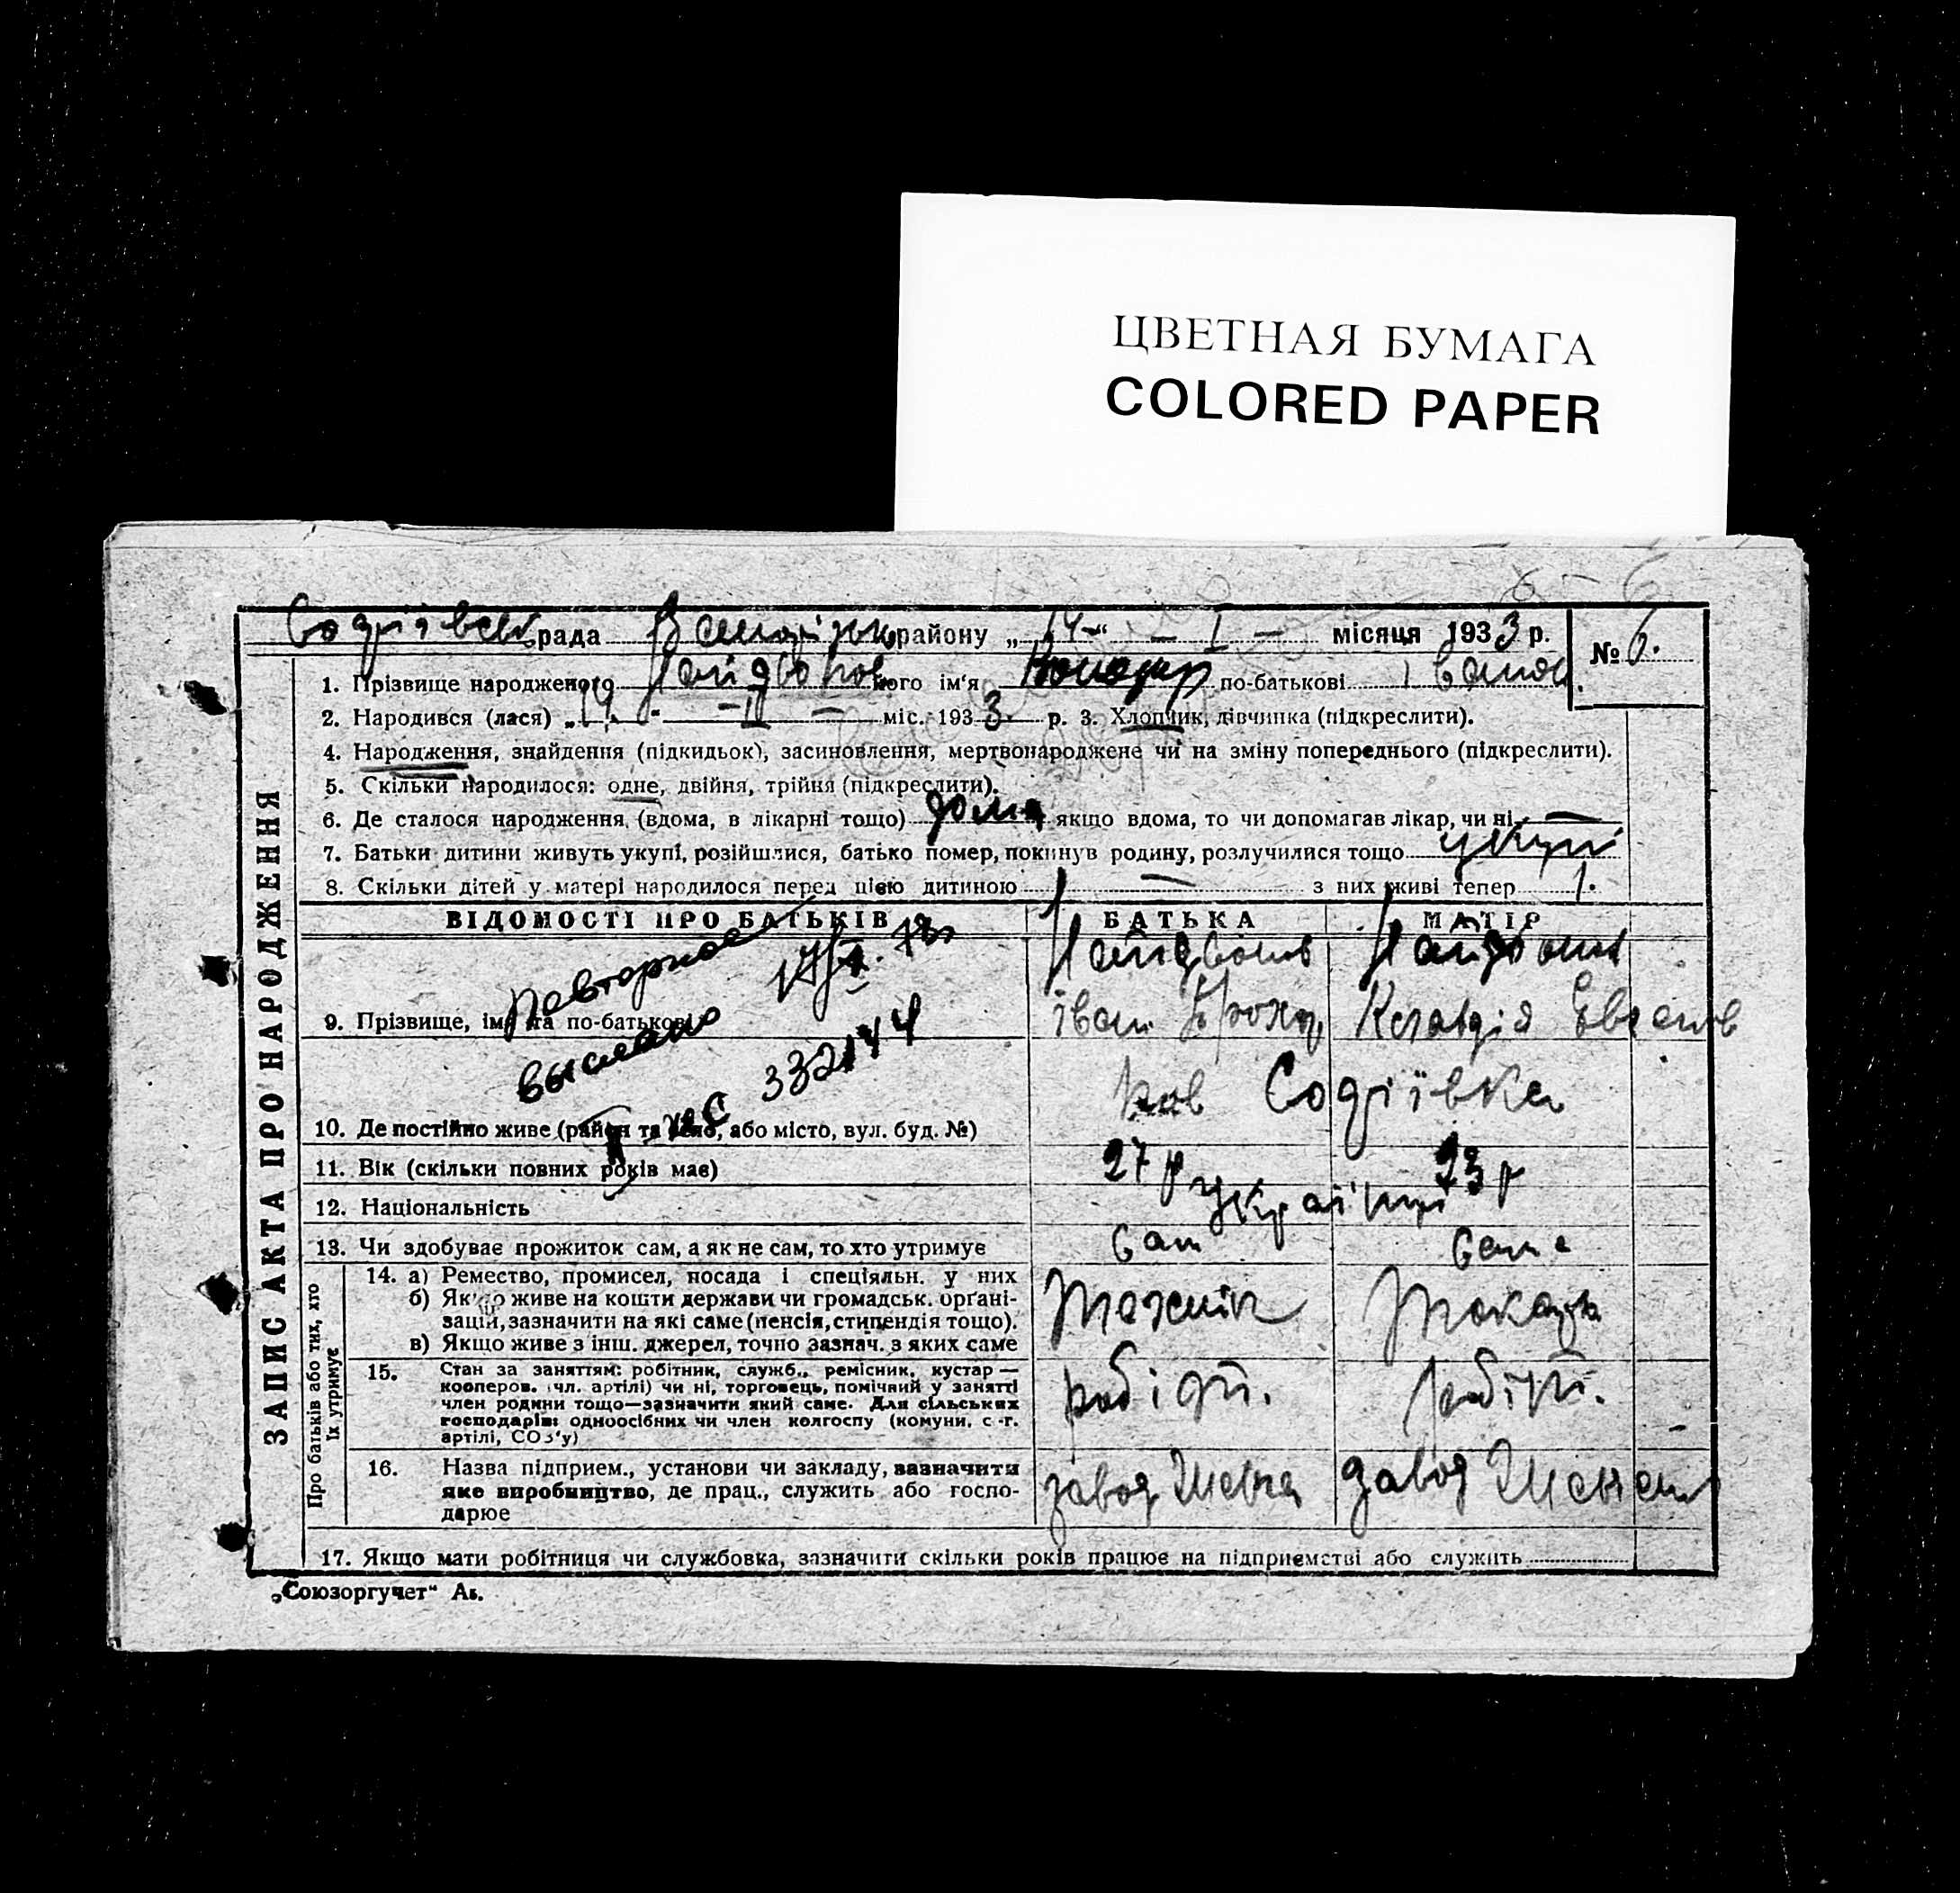 ЦВЕТНАЯ БУМАГА
COLORED PAPER
6 – 6
рада району „14“ – I – місяця 1933 р. № 6.
1. Прізвище народженого ім'я по-батькові Іванов
2. Народився (лася) „14“ – I – міс. 1933 р. 3. Хлопчик, дівчинка (підкреслити).
4. Народження, знайдення (підкидьок), засиновлення, мертвонароджене чи на зміну попереднього (підкреслити).
5. Скільки народилося: одне, двійня, трійня (підкреслити).
6. Де сталося народження, (вдома, в лікарні тощо) дома якщо вдома, то чи допомагав лікар, чи ні –
7. Батьки дитини живуть укупі, розійшлися, батько помер, покинув родину, розлучилися тощо укупі
8. Скільки дітей у матері народилося перед цією дитиною – з них живі тепер 1.
ВІДОМОСТІ ПРО БАТЬКІВ БАТЬКА МАТІР
Повторное
выслано
332144
9. Прізвище, ім'я та по-батькові Іван Клавдія
10. Де постійно живе (район та село, або місто, вул. буд. №) Софіївка
11. Вік (скільки повних років має) 27 р 23 р
12. Національність Українці
13. Чи здобуває прожиток сам, а як не сам, то хто утримує сам сама
14. а) Ремество, промисел, посада і спеціяльн. у них
б) Якщо живе на кошти держави чи громадськ. органі-
зацій, зазначити на які саме (пенсія, стипендія тощо).
в) Якщо живе з інш. джерел, точно зазнач. з яких саме
15. Стан за заняттям: робітник, служб., ремісник, кустар —
кооперов. (чл. артілі) чи ні, торговець, помічний у занятті
член родини тощо—зазначити який саме. Для сільських
господарів: одноосібних чи член колгоспу (комуни, с.-г.
артілі, СОЗ'у) робітн. робітн.
16. Назва підприєм., установи чи закладу, зазначити
яке виробництво, де прац., служить або госпо-
дарює завод завод
17. Якщо мати робітниця чи службовка, зазначити скільки років працює на підприємстві або служить
ЗАПИС АКТА ПРО НАРОДЖЕННЯ
Про батьків або тих, хто
їх утримує
„Союзоргучет“